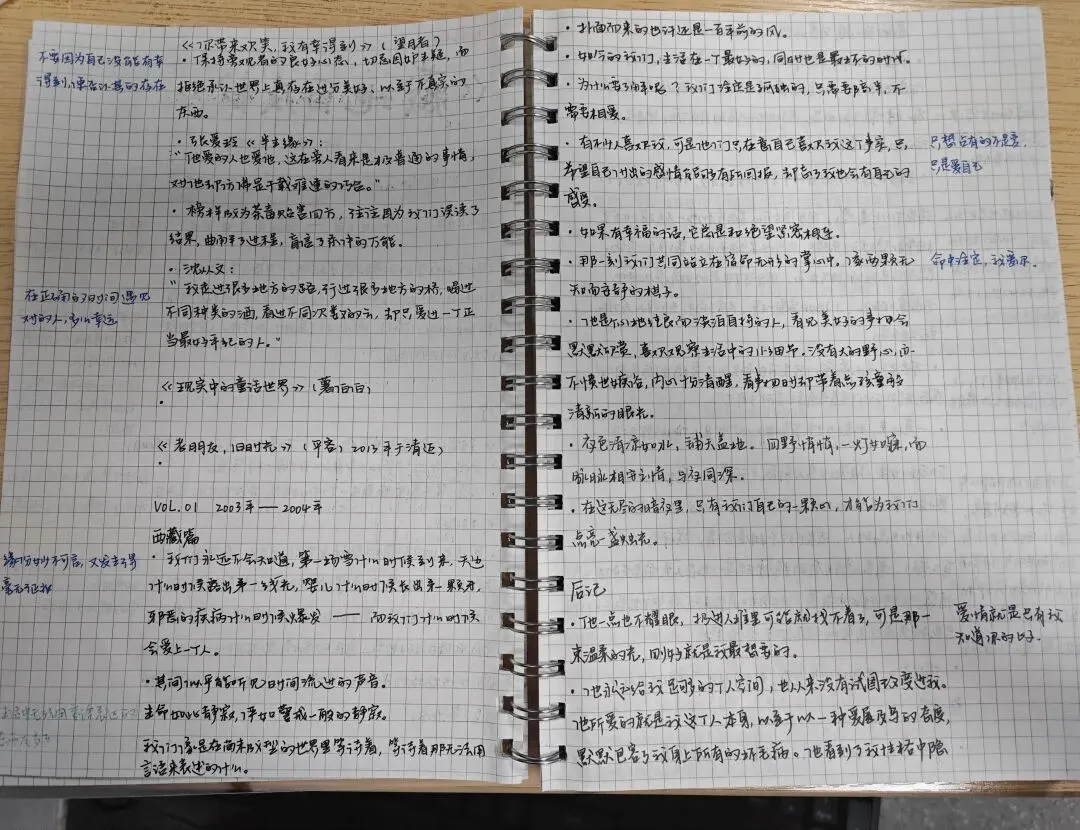 《你带来欢笑，我有幸得到》（望月者）
不要因为自己没能有幸
得到，便否认其的存在
·保持旁观者的良好心态，切忌因妒生疑，而
拒绝承认世界上真存在过分美好、以至于不真实的
东西。
·张爱玲《半生缘》：
“他爱的人也爱他，这在旁人看来是极普通的事情，
对他却仿佛是千载难逢的巧合。”
·榜样成为荼毒贻害四方，往往因为我们误读了
结果，曲解了过程，盲信了条件的万能。
·沈从文：
“我走过很多地方的路，行过很多地方的桥，喝过
不同种类的酒，看过不同次数的云，却只爱过一个正
当最好年纪的人。”
在正确的时间遇见
对的人，多么幸运
《现实中的童话世界》（蔫白白）
·
《老朋友，旧时光》（平客）2013年于清迈
·
VOL.01 2003年——2004年
西藏篇
缘份妙不可言，又发生得
毫无征兆
·我们永远不会知道，第一场雪什么时候到来，天边
什么时候露出第一线光，婴儿什么时候长出第一颗牙，
邪恶的疾病什么时候爆发——而我们什么时候
会爱上一个人。
·其间似乎能听见时间流过的声音。
生命如此静寂，浮如警戒一般的静寂。
我们像是在尚未成型的世界里等待着，等待着那无法用
言语来表述的什么。
·扑面而来的也许还是一百年前的风。
·如今的我们，生活在一个最好的，同时也是最坏的时代。
·为什么要了解呢？我们注定是孤独的，只需要陪伴，不
需要相爱。
·有不少人喜欢我，可是他们只在意自己喜欢我这个事实，只
希望自己付出的感情能够有所回报，却忘了我也会有自己的
感受。
只想占有的不是爱，
只是爱自己
·如果有幸福的话，它总是和绝望紧密相连。
·那一刻我们共同站立在宿命无形的掌心中，像两颗无
知而安静的棋子。
命中注定，我爱你
·他是个心地纯良而淡泊自持的人，看见美好的事物会
默默欣赏，喜欢观察生活中的小细节。没有大的野心，而
不愤世嫉俗，内心十分清醒，看事物时却带着点孩童般
清新的眼光。
·夜色清凉如水，铺天盖地。四野悄悄，一灯如豆，而
脉脉相守之情，与夜同深。
·在这无尽的暗夜里，只有我们自己的一颗心，才能为我们
点亮一盏烛光。
后记
·他一点也不耀眼，扔进人堆里可能就找不着了，可是那一
束温柔的光，刚好就是我最想要的。
爱情就是只有我
知道你的好
·他永远给我足够的个人空间，也从来没有试图改变过我。
他所爱的就是我这个人本身，以至于以一种爱屋及乌的态度，
默默包容了我身上所有的坏毛病。他看到了我性格中隐